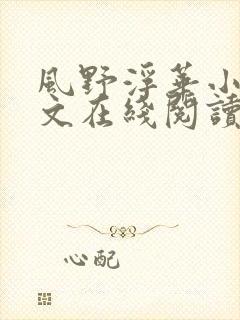 風野浮華小
文在綫閱讀
心配